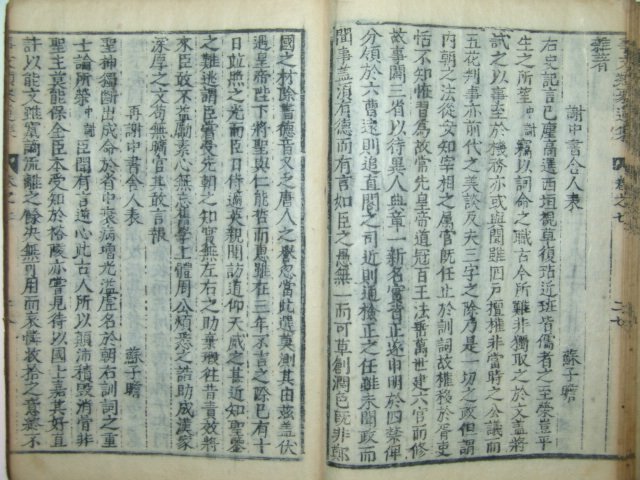 雜著
謝中書舍人表
蘇子瞻
右史記言已塵高選西垣視草復玷近班皆儒者之至榮豈平
生之所望中謝竊以詞命之職古今所難非獨取之於文盖將
試之以事至於機務亦或與聞雖四戶擅權非當時之公議而
五花判事亦前代之美談及夫三字之除乃是一切之政但謂
內朝之法從文知宰相之属官既任止於訓詞故權移於胥吏
恬不知恠習爲故常先皇帝道冠百王法垂萬世建六官而修
故事闢三省以待異人典章一新名實皆正逐申明於四禁俾
分領於六曹遠則追直閣之司近則通檢正之任雖未聞政而
聞事益須有德而有言如臣之愚無一而可草創潤色既非鄭
國之材除書德音又乏唐人之譽忽當此選莫測其由玆盖伏
遇皇帝陛下將聖與仁能哲而惠雖在三年不言之際已有十
日並照之光而臣日侍邇英親聞訪道仰天威之甚近知聖鑒
之難逃謂臣嘗受先朝之知實無左右之助棄瑕往昔責效將
來臣敢不益勵素心無忘舊學上體周公煩悉之誥助成漢家
深厚之文苟無曠官其敢言報
再謝中書舍人表
蘇子瞻
聖神獨斷出成命於省中衰病增光濫虛名於朝右訓詞之重
士論所榮中謝臣聞有言逆心此古人所以顛沛積毀消骨非
聖主莫能保全臣本受知於裕陵亦嘗見待以國士嘉其好直
許以能文雖竄謫流離之餘決無可用而哀憐收拾之意終不